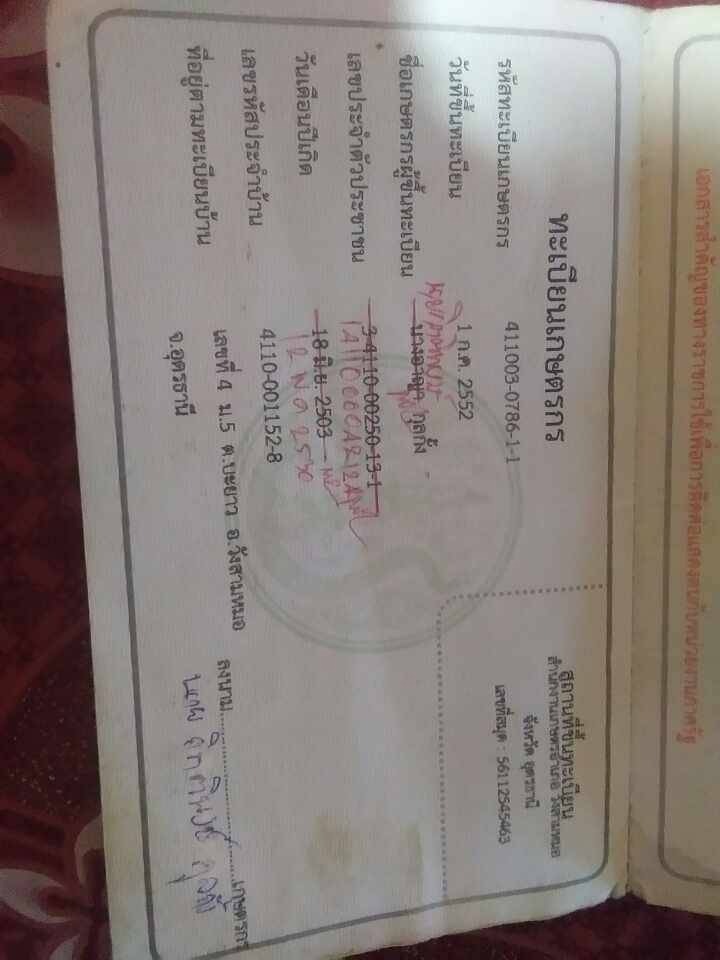 เอกสารสำคัญของทางราชการใช้เพื่อการติดต่อแสดงตนกับหน่วยงานภาครัฐ
ทะเบียนเกษตรกร
สถานที่ขึ้นทะเบียน
สำนักงานเกษตรอำเภอ วังสามหมอ
จังหวัด อุดรธานี
เลขที่สมุด : 56112545463
รหัสทะเบียนเกษตรกร 411003-0786-1-1
วันที่ขึ้นทะเบียน 1 ก.ค. 2552
ชื่อเกษตรกรผู้ขึ้นทะเบียน
เลขประจำตัวประชาชน 3-4110-00250-13-1
วันเดือนปีเกิด 18 มิ.ย. 2503
12 พ.ค 2530
เลขรหัสประจำบ้าน 4110-001152-8
ที่อยู่ตามทะเบียนบ้าน เลขที่ 4 ม.5 ต.บะยาว อ.วังสามหมอ
จ.อุดรธานี
ลงนาม..........เกษตรกร